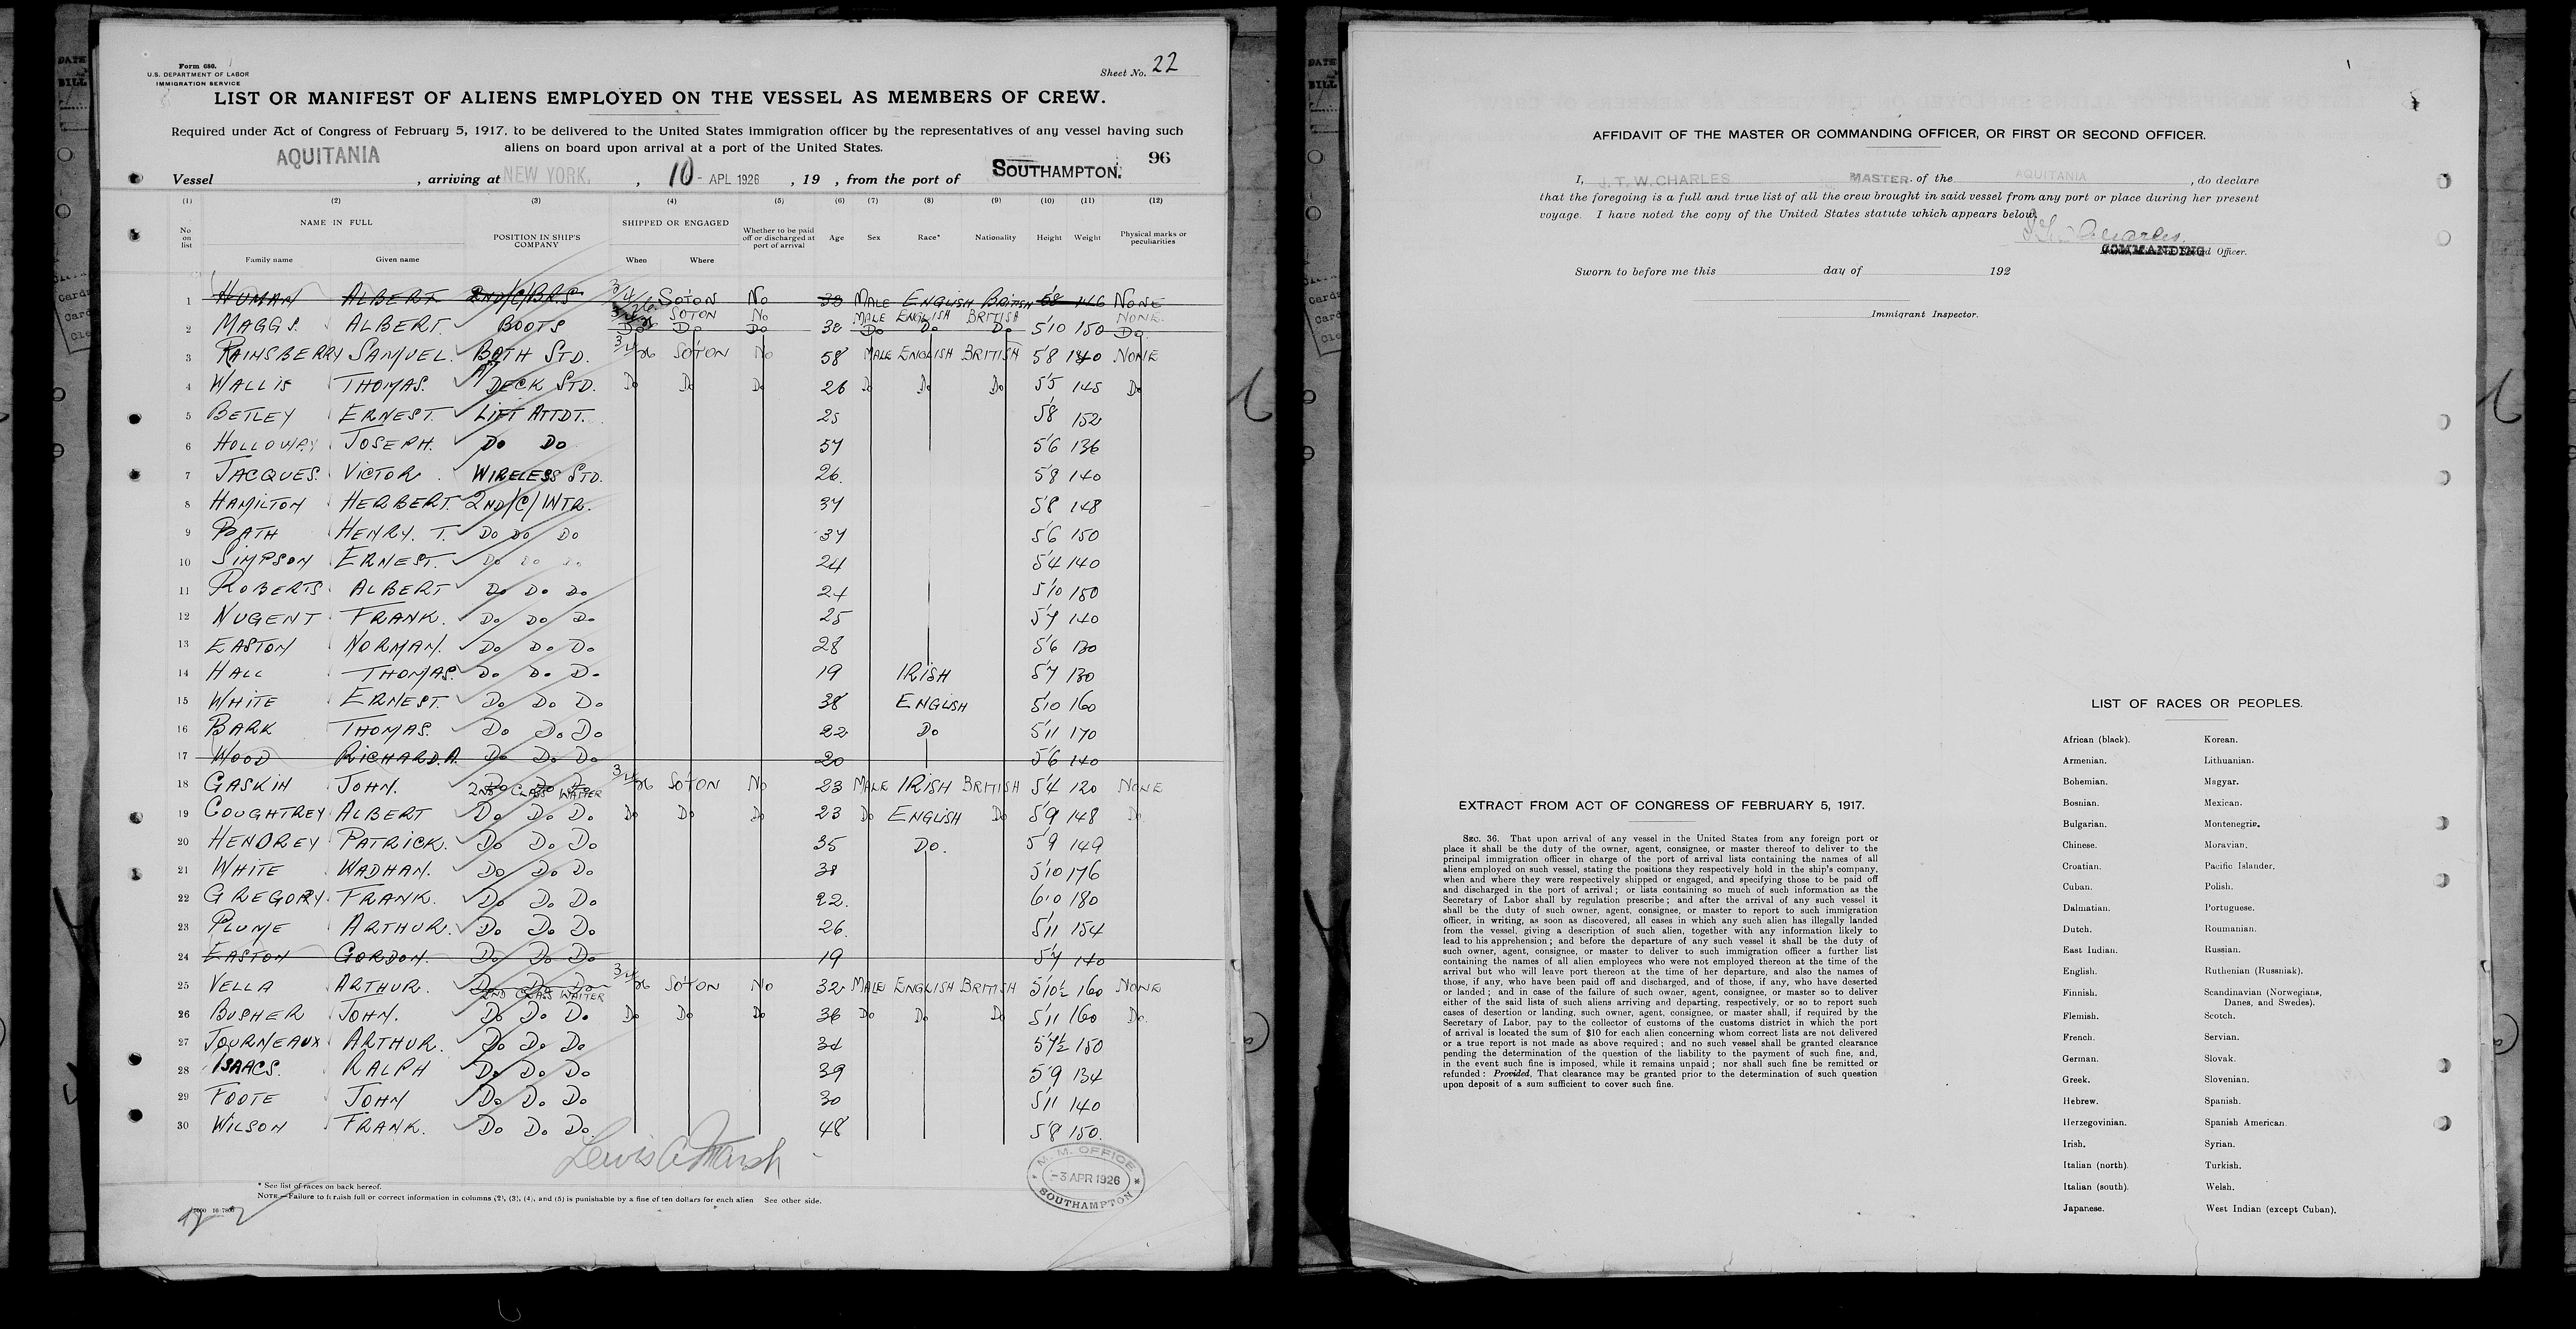 Form 680.
U.S. DEPARTMENT OF LABOR
IMMIGRATION SERVICE
Sheet No. 22
LIST OR MANIFEST OF ALIENS EMPLOYED ON THE VESSEL AS MEMBERS OF CREW.
Required under Act of Congress of February 5, 1917, to be delivered to the United States immigration officer by the representatives of any vessel having such
aliens on board upon arrival at a port of the United States.
96
Vessel AQUITANIA, arriving at NEW YORK, 10 - APL 1926, 19 , from the port of SOUTHAMPTON.
(1) (2) (3) (4) (5) (6) (7) (8) (9) (10) (11) (12)
No on list NAME IN FULL Family name Given name POSITION IN SHIP'S COMPANY SHIPPED OR ENGAGED When Where Whether to be paid off or discharged at port of arrival Age Sex Race* Nationality Height Weight Physical marks or peculiarities
1 HUMAN ALBERT 2ND/C/BRS 3/4/26 SOTON No 38 MALE ENGLISH BRITISH 5'8 146 NONE
3/4/26 SOTON No MALE ENGLISH BRITISH NONE
2 MAGGS. ALBERT. BOOTS Do Do Do 32 Do Do Do 5'10 150 Do
3 RAINSBERRY SAMUEL. BATH STD. 3/4/26 SOTON No 58 MALE ENGLISH BRITISH 5'8 140 NONE
4 WALLIS THOMAS. DECK STD. Do Do Do 26 Do Do Do 5'5 145 Do
5 BETLEY ERNEST. LIFT ATTDT. 25 5'8 152
6 HOLLOWAY JOSEPH. Do Do 57 5'6 136
7 JACQUES. VICTOR. WIRELESS STD. 26. 5'8 140
8 HAMILTON HERBERT. 2ND/C/WTR. 37 5'8 148
9 BATH HENRY. T. Do Do Do 37 5'6 150
10 SIMPSON ERNEST. Do Do Do 24 5'4 140
11 ROBERTS ALBERT Do Do Do 24 5'10 150
12 NUGENT FRANK. Do Do Do 25 5'7 140
13 EASTON NORMAN. Do Do Do 28 5'6 130
14 HALL THOMAS. Do Do Do 19 IRISH 5'7 130
15 WHITE ERNEST. Do Do Do 38 ENGLISH 5'10 160
16 BARK THOMAS. Do Do Do 22 Do 5'11 170
17 WOOD RICHARD.A. Do Do Do 20 5'6 140
18 GASKIN JOHN. Do Do Do 2ND CLASS WAITER 3/4/26 SOTON No 23 MALE IRISH BRITISH 5'4 120 NONE
19 COUGHTREY ALBERT Do Do Do Do Do Do 23 Do ENGLISH Do 5'9 148 Do
20 HENDREY PATRICK. Do Do Do 35 Do. 5'9 149
21 WHITE WADHAN. Do Do Do 38 5'10 176
22 GREGORY. FRANK. Do Do Do 22. 6'0 180
23 PLUME ARTHUR. Do Do Do 26. 5'11 154
24 EASTON GORDON. Do Do Do 19 5'7 140
25 VELLA ARTHUR. Do Do Do 2ND CLASS WAITER 3/4/26 SOTON No 32 MALE ENGLISH BRITISH 5'10½ 160 NONE
26 BUSHER JOHN. Do Do Do Do Do Do 36 Do Do Do 5'11 160 Do
27 JOURNEAUX ARTHUR. Do Do Do 34 5'7½ 150
28 ISAACS. RALPH Do Do Do 39 5'9 134
29 FOOTE JOHN Do Do Do 30 5'11 140
30 WILSON FRANK. Do Do Do 48 5'8 150.
Lewis C Marsh
M. M. OFFICE
-3 APR 1926
SOUTHAMPTON
* See list of races on back hereof.
NOTE.—Failure to furnish full or correct information in columns (2), (3), (4), and (5) is punishable by a fine of ten dollars for each alien See other side.
AFFIDAVIT OF THE MASTER OR COMMANDING OFFICER, OR FIRST OR SECOND OFFICER.
I, J. T. W. CHARLES MASTER. of the AQUITANIA, do declare
that the foregoing is a full and true list of all the crew brought in said vessel from any port or place during her present
voyage. I have noted the copy of the United States statute which appears below.
COMMANDING Officer.
Sworn to before me this day of 192
Immigrant Inspector.
EXTRACT FROM ACT OF CONGRESS OF FEBRUARY 5, 1917.
SEC. 36. That upon arrival of any vessel in the United States from any foreign port or
place it shall be the duty of the owner, agent, consignee, or master thereof to deliver to the
principal immigration officer in charge of the port of arrival lists containing the names of all
aliens employed on such vessel, stating the positions they respectively hold in the ship's company,
when and where they were respectively shipped or engaged, and specifying those to be paid off
and discharged in the port of arrival; or lists containing so much of such information as the
Secretary of Labor shall by regulation prescribe; and after the arrival of any such vessel it
shall be the duty of such owner, agent, consignee, or master to report to such immigration
officer, in writing, as soon as discovered, all cases in which any such alien has illegally landed
from the vessel, giving a description of such alien, together with any information likely to
lead to his apprehension; and before the departure of any such vessel it shall be the duty of
such owner, agent, consignee, or master to deliver to such immigration officer a further list
containing the names of all alien employees who were not employed thereon at the time of the
arrival but who will leave port thereon at the time of her departure, and also the names of
those, if any, who have been paid off and discharged, and of those, if any, who have deserted
or landed; and in case of the failure of such owner, agent, consignee, or master so to deliver
either of the said lists of such aliens arriving and departing, respectively, or so to report such
cases of desertion or landing, such owner, agent, consignee, or master shall, if required by the
Secretary of Labor, pay to the collector of customs of the customs district in which the port
of arrival is located the sum of $10 for each alien concerning whom correct lists are not delivered
or a true report is not made as above required; and no such vessel shall be granted clearance
pending the determination of the question of the liability to the payment of such fine, and,
in the event such fine is imposed, while it remains unpaid; nor shall such fine be remitted or
refunded: Provided, That clearance may be granted prior to the determination of such question
upon deposit of a sum sufficient to cover such fine.
LIST OF RACES OR PEOPLES.
African (black). Korean.
Armenian. Lithuanian.
Bohemian. Magyar.
Bosnian. Mexican.
Bulgarian. Montenegrin.
Chinese. Moravian.
Croatian. Pacific Islander.
Cuban. Polish.
Dalmatian. Portuguese.
Dutch. Roumanian.
East Indian. Russian.
English. Ruthenian (Russniak).
Finnish. Scandinavian (Norwegians, Danes, and Swedes).
Flemish. Scotch.
French. Servian.
German. Slovak.
Greek. Slovenian.
Hebrew. Spanish.
Herzegovinian. Spanish American.
Irish. Syrian.
Italian (north). Turkish.
Italian (south). Welsh.
Japanese. West Indian (except Cuban).